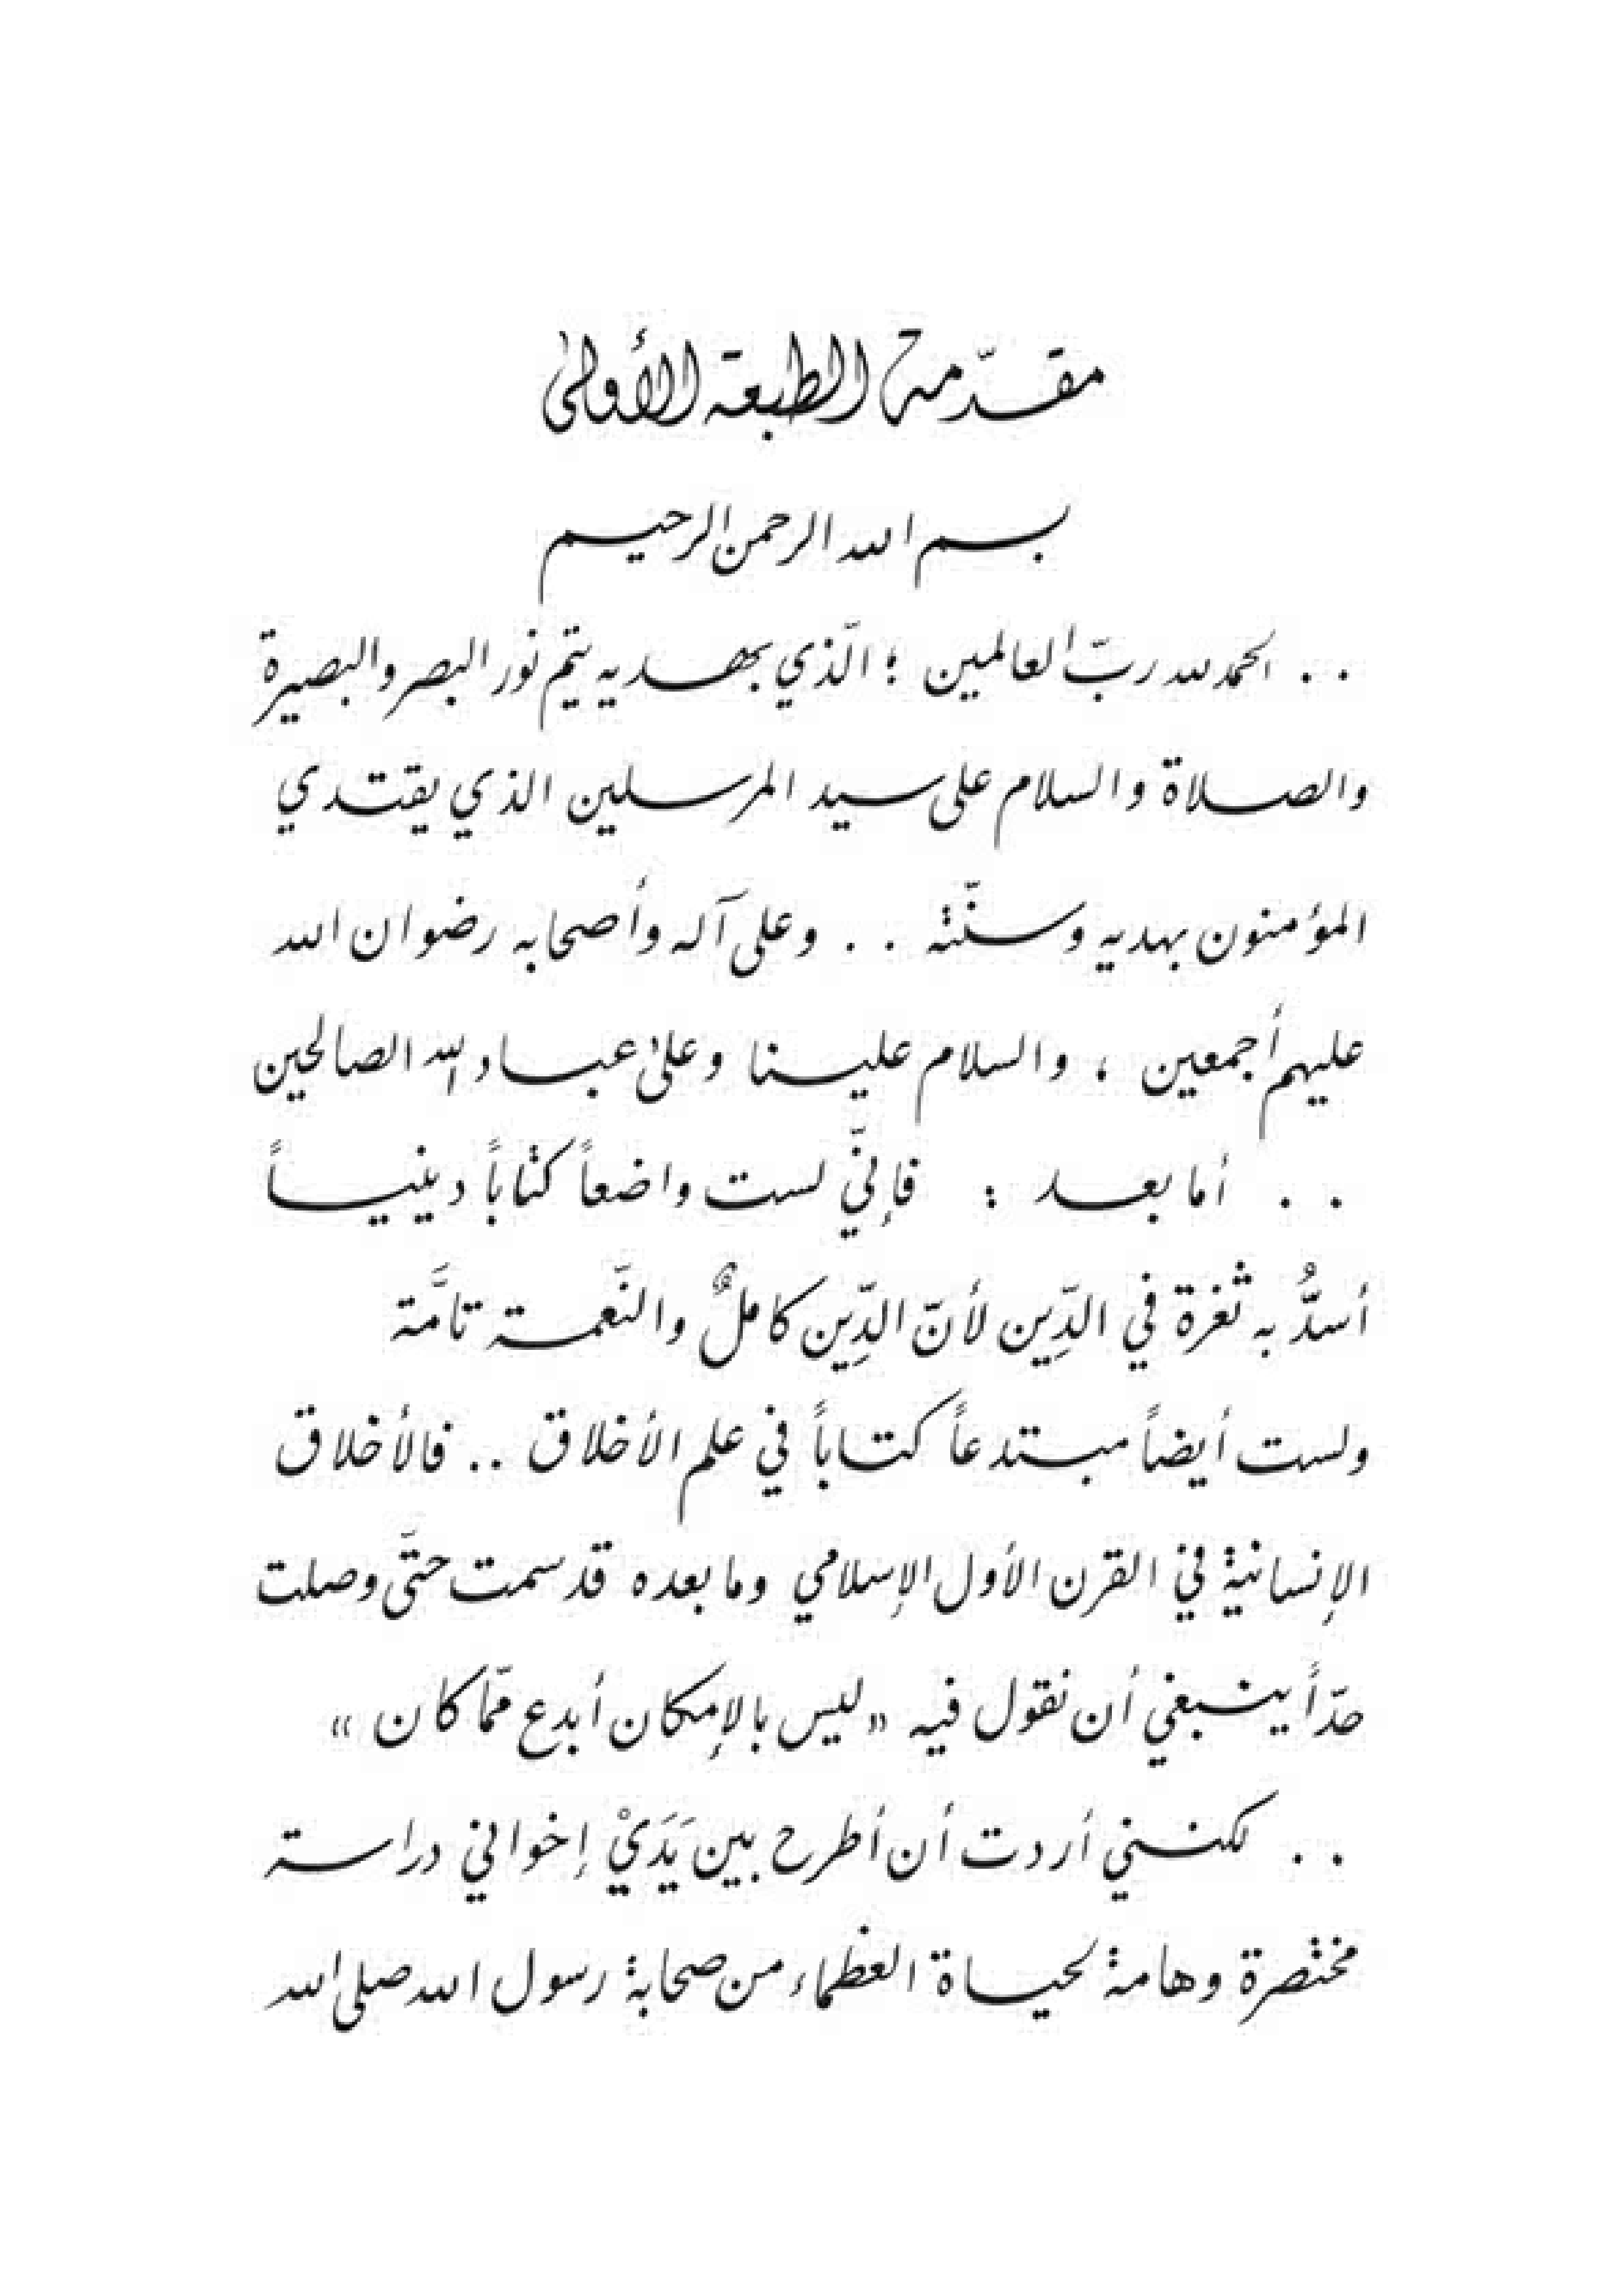 مقدّمة الطبعة الأولىٰ
بسم الله الرحمن الرحيم
. . الحمد لله ربّ العالمين ؛ الّذي بهديه يتم نور البصر والبصيرة
والصلاة والسلام على سيد المرسلين الذي يقتدي
المؤمنون بهديه وسنّته . . وعلى آله وأصحابه رضوان الله
عليهم أجمعين ، والسلام علينا وعلىٰ عباد الله الصالحين
. . أما بعد : فإنّي لست واضعاً كتاباً دينياً
أسدُّ به ثغرة في الدِّين لأنّ الدِّين كاملٌ والنّعمة تامَّة
ولست أيضاً مبتدعاً كتاباً في علم الأخلاق .. فالأخلاق
الإنسانية في القرن الأول الإسلامي وما بعده قد سمت حتَّى وصلت
حدّاً ينبغي أن نقول فيه « ليس بالإمكان أبدع ممّا كان »
. . لكنني أردت أن أطرح بين يَدَيْ إخواني دراسة
مختصرة وهامة لحياة العظماء من صحابة رسول الله صلى الله